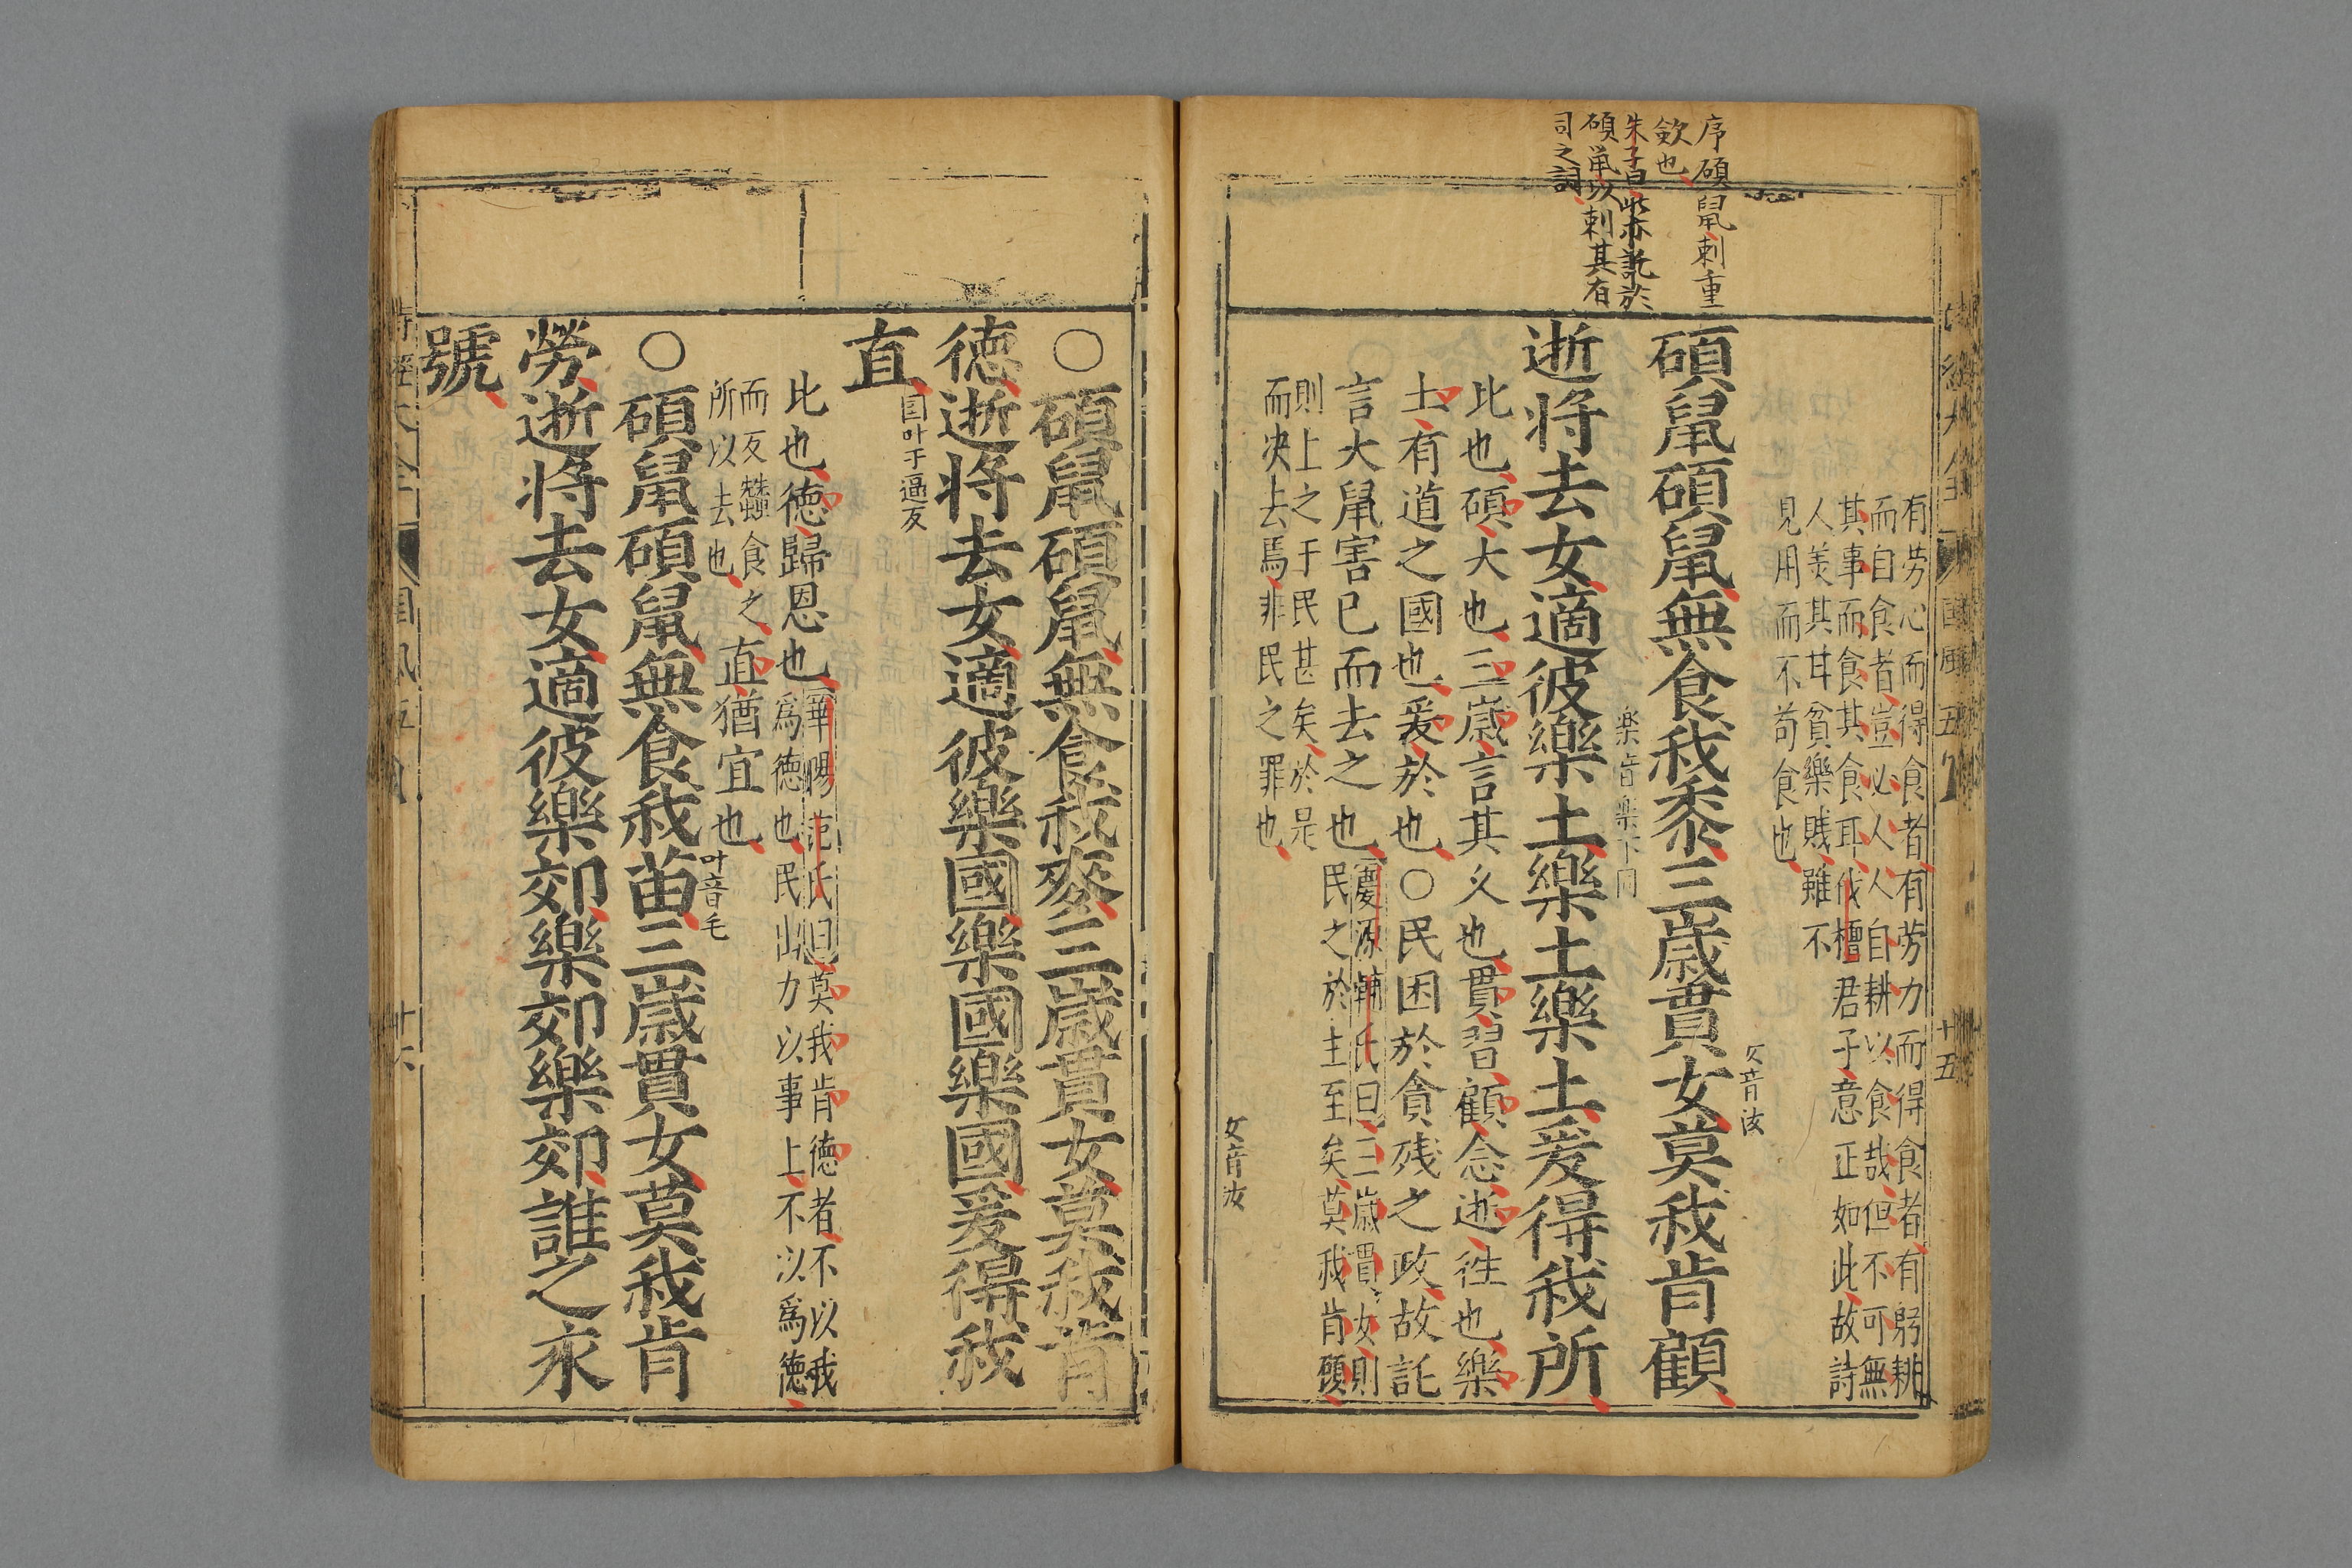 序碩鼠刺重
斂也
朱子曰此亦託於
碩鼠以刺其有
司之詞
國風五
十五
有労心而得食者有労力而得食者有躬耕
而自食者豈必人人自耕以食哉但不可無
其事而食其食耳伐檀君子意正如此故詩
人羙其甘貧樂賤雖不
見用而不苟食也
女音汝
碩鼠碩鼠無食我黍三歳貫女莫我肯顧
楽音樂下同
逝将去女適彼樂土樂土樂土爰得我所
比也碩大也三歳言其久也貫習顧念逝徃也樂
土有道之國也爰於也○民困於貪残之政故託
言大鼠害已而去之也
慶源輔氏曰三歳貫女則
民之於主至矣莫我肯顧
則上之于民甚矣於是
而决去焉非民之罪也
女音汝
○碩鼠碩鼠無食我麥三歳貫女莫我肯
徳逝将去女適彼樂國樂國樂國爰得我
直
国叶于逼反
比也徳歸恩也
華陽范氏曰莫我肯徳者不以我
爲徳也民出力以事上不以爲徳
而反蠶食之
所以去也
直猶宜也
叶音毛
○碩鼠碩鼠無食我苗三歳貫女莫我肯
勞逝将去女適彼樂郊樂郊樂郊誰之永
號